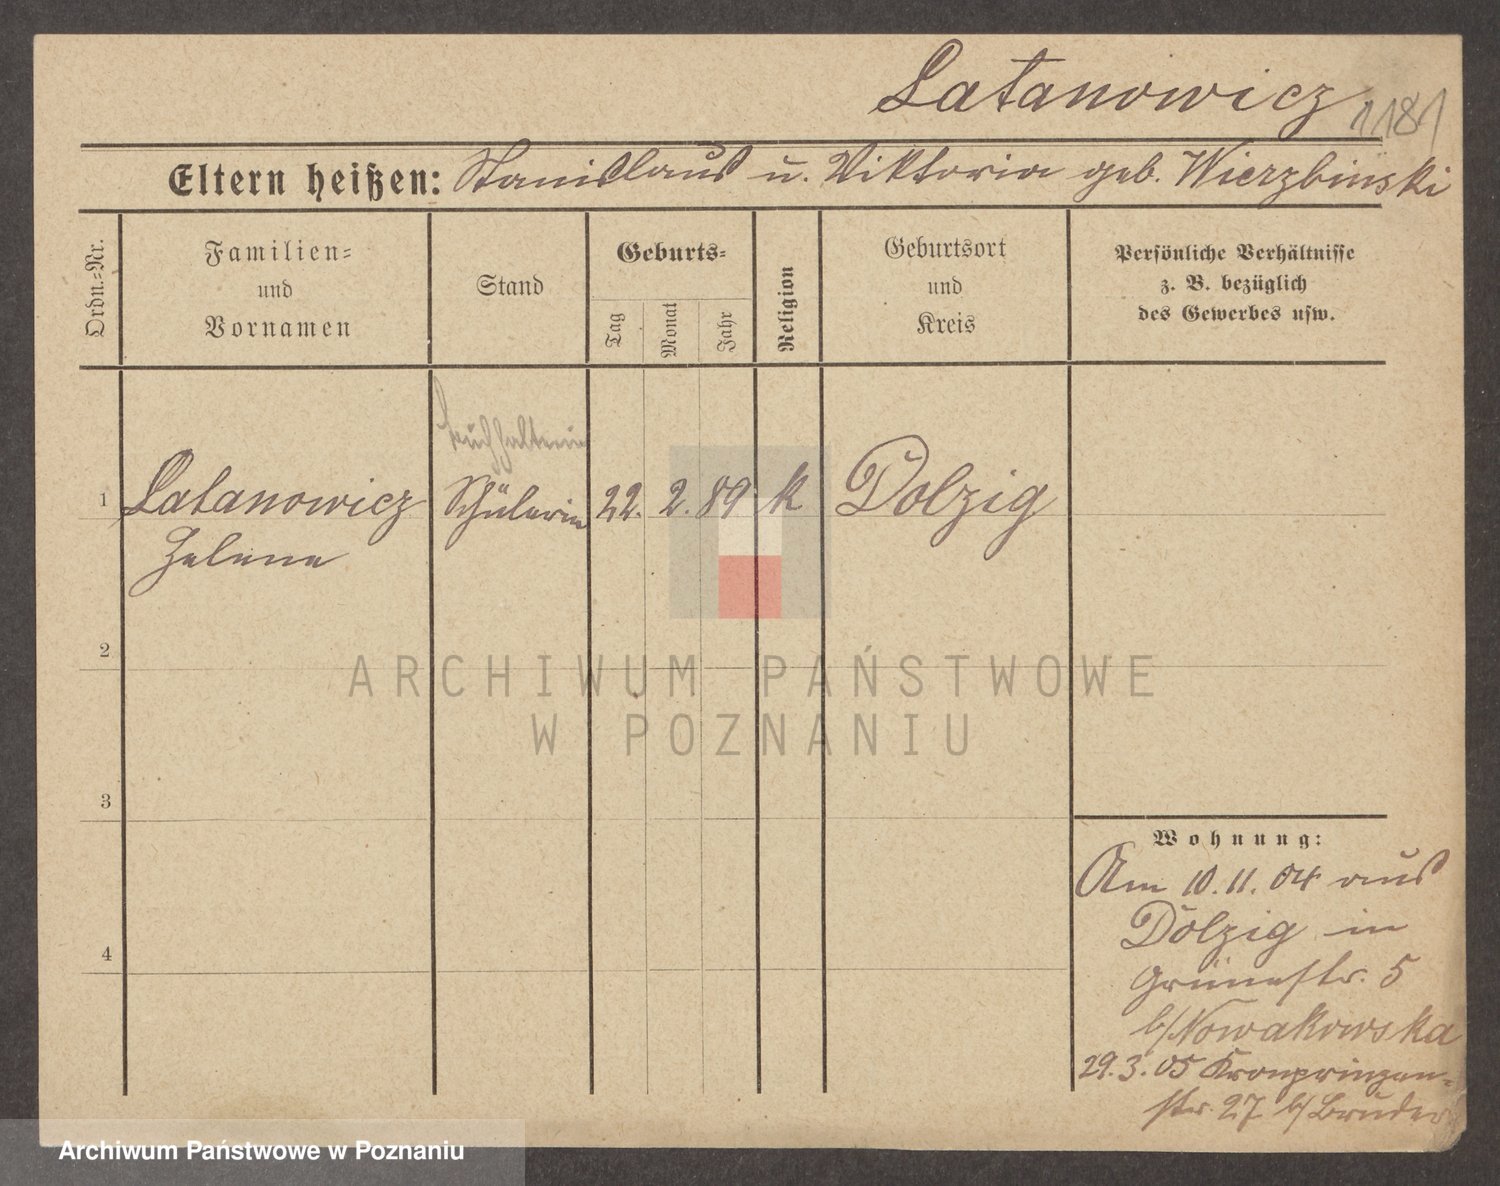 Latanowicz
1181
Eltern heißen: Stanislaus u. Viktoria geb. Wierzbinski
Ordn.-Nr.
Familien-
und
Vornamen
Stand
Geburts-
Tag
Monat
Jahr
Religion
Geburtsort
und
Kreis
Persönliche Verhältnisse
z. B. bezüglich
des Gewerbes usw.
Buchhalterin
1 Latanowicz Schülerin 22. 2. 89 k Dolzig
Helene
2
ARCHIWUM PAŃSTWOWE
W POZNANIU
3
Wohnung:
Am 10.11.04 aus
Dolzig in
4
Grünestr. 5
b/Nowakowska
29.3.05 Kronprinzen-
str. 27 b/Bruder
Archiwum Państwowe w Poznaniu